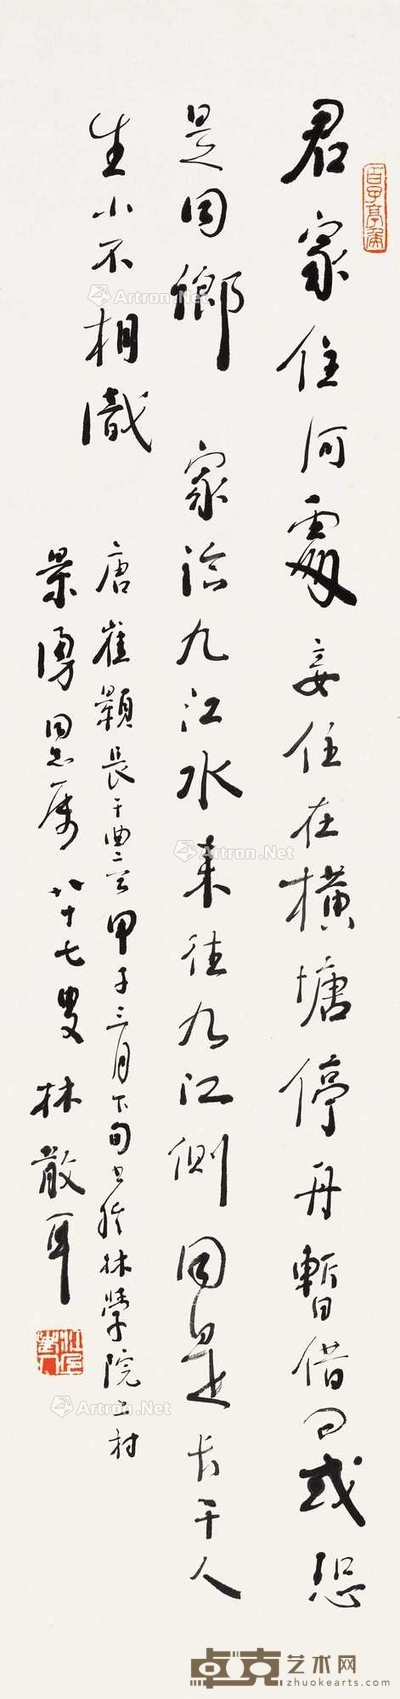 君家住何處妾住在橫塘停舟暫借問或恐
是同鄉 家臨九江水來往九江側同是長干人
生小不相識
唐崔顥長干曲二首甲子三月下旬書於林學院村
景勇同志属 八十七叟 林散耳
Artron.Net
Artron.Net
Artron.Net
Artron.Net
Artron.Net
Artron.Net
卓克艺术网
www.zhuokearts.com